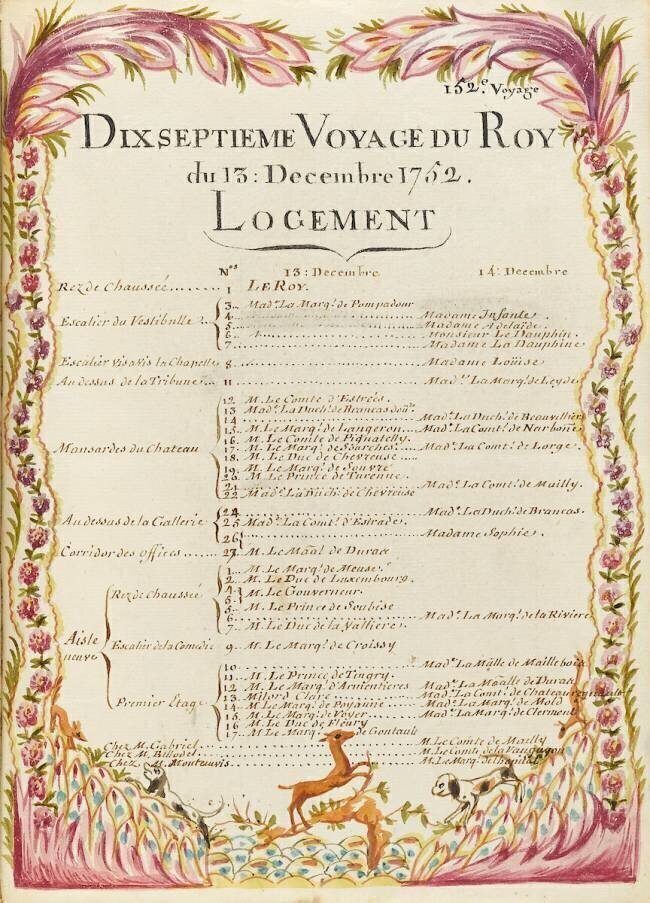 152.e Voyage
DIXSEPTIEME VOYAGE DU ROY
du 13: Decembre 1752.
LOGEMENT
N.os 13: Decembre 14: Decembre
Rez de Chaussée ....... 1 LE ROY.
3... Mad.e La Marq.e de Pompadour
Escalier du Vestibulle 4 Madame Infante.
5 Madame Adelaïde.
6 Monsieur Le Dauphin.
7 Madame La Dauphine
Escalier vis avis la Chapelle 8 Madame Loüise
Au dessus de la Tribune ... 11 Mad.e La Marq.e de Leyde
12 M. Le Comte d'Estrées.
13 Mad.e La Duch.e de Brancas
14 Mad.e La Duch.e de Beauvilliers
15. M. Le Marq.s de Langeron... Mad.e La Comt.e de Narbone
16. M. Le Comte de Piquatelly.
Mansardes du Chateau 17 M. Le Marq.s de Sourches... Mad.e La Comt.e de Lorge.
18. M. Le Duc de Chevreuse
19. M. Le Marq.s de Souvré
20. M. Le Prince de Turenne.
21 Mad.e La Comt.e de Mailly.
22 Mad.e La Duch.e de Chevreuse
24 Mad.e La Duch.e de Brancas.
Au dessus de la Gallerie 25 Mad.e La Comt.e d'Estrade.
26 Madame Sophie.
Corridor des offices ...... 27. M. Le Maal de Duras
1... M. Le Marq.s de Meuse.
2.. M. Le Duc de Luxembourg.
Rez de Chaussée 4. M. Le Gouverneur
5.
5... M. Le Prince de Soubise
6 Mad.e La Marq.e de la Riviere
7... M. Le Duc de la Valliere
Aisle neuve
Escalier de la Comedie 9... M. Le Marq.s de Croissy
10 Mad.e La Malle de Maillebois
11... M. Le Prince de Tingry.
12 M. Le Marq.s d'Armentieres Mad.e La Maalle de Duras
Premier Etage 13. Milord Clare Mad.e La Comt.e de Chateaureynault
14. M. Le Marq.s de Poyanne Mad.e La Marq.e de
15. M. Le Marq.s de Voyer Mad.e La Marq.e de Clermont
16 M. Le Duc de Fleury
17 M. Le Marq.s de Gontault
Chez M. Gabriel M. Le Comte de Mailly
Chez M. M. Le Comte de la Vauguyon
Chez M. M. Le Marq.s de